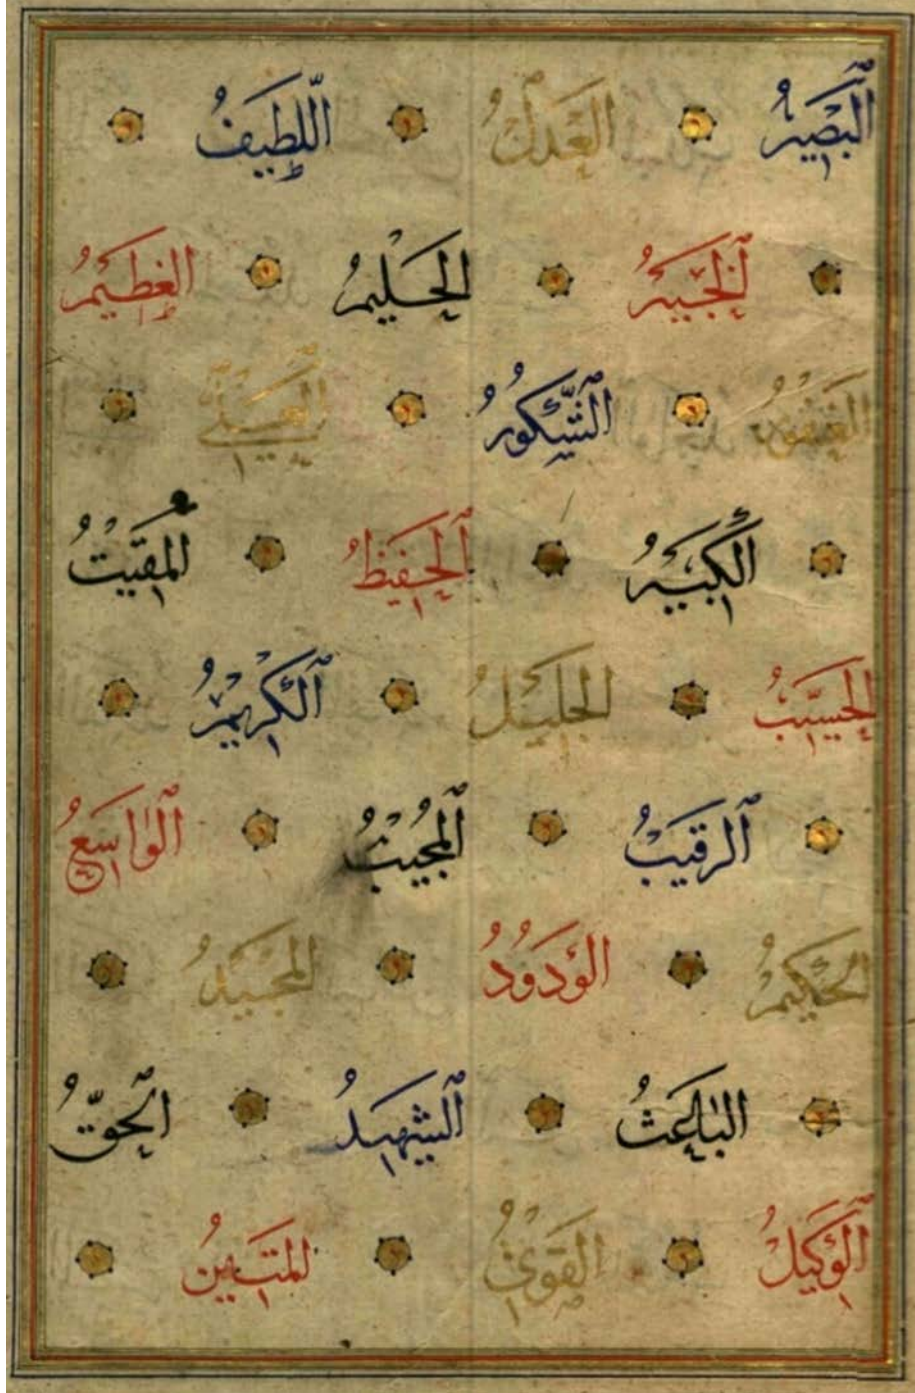 اَلْبَصِيرُ الْعَدْلُ اَللَّطِيفُ
اَلْخَبِيرُ اَلْحَلِيمُ الْعَظِيمُ
اَلْغَفُورُ اَلشَّكُورُ اَلْعَلِيُّ
اَلْكَبِيرُ اَلْحَفِيظُ الْمُقِيتُ
الْحَسِيبُ الْجَلِيلُ اَلْكَرِيمُ
اَلرَّقِيبُ اَلْمُجِيبُ اَلْوَاسِعُ
الْحَكِيمُ الْوَدُودُ الْمَجِيدُ
الْبَاعِثُ اَلشَّهِيدُ اَلْحَقُّ
اَلْوَكِيلُ الْقَوِيُّ الْمَتِينُ